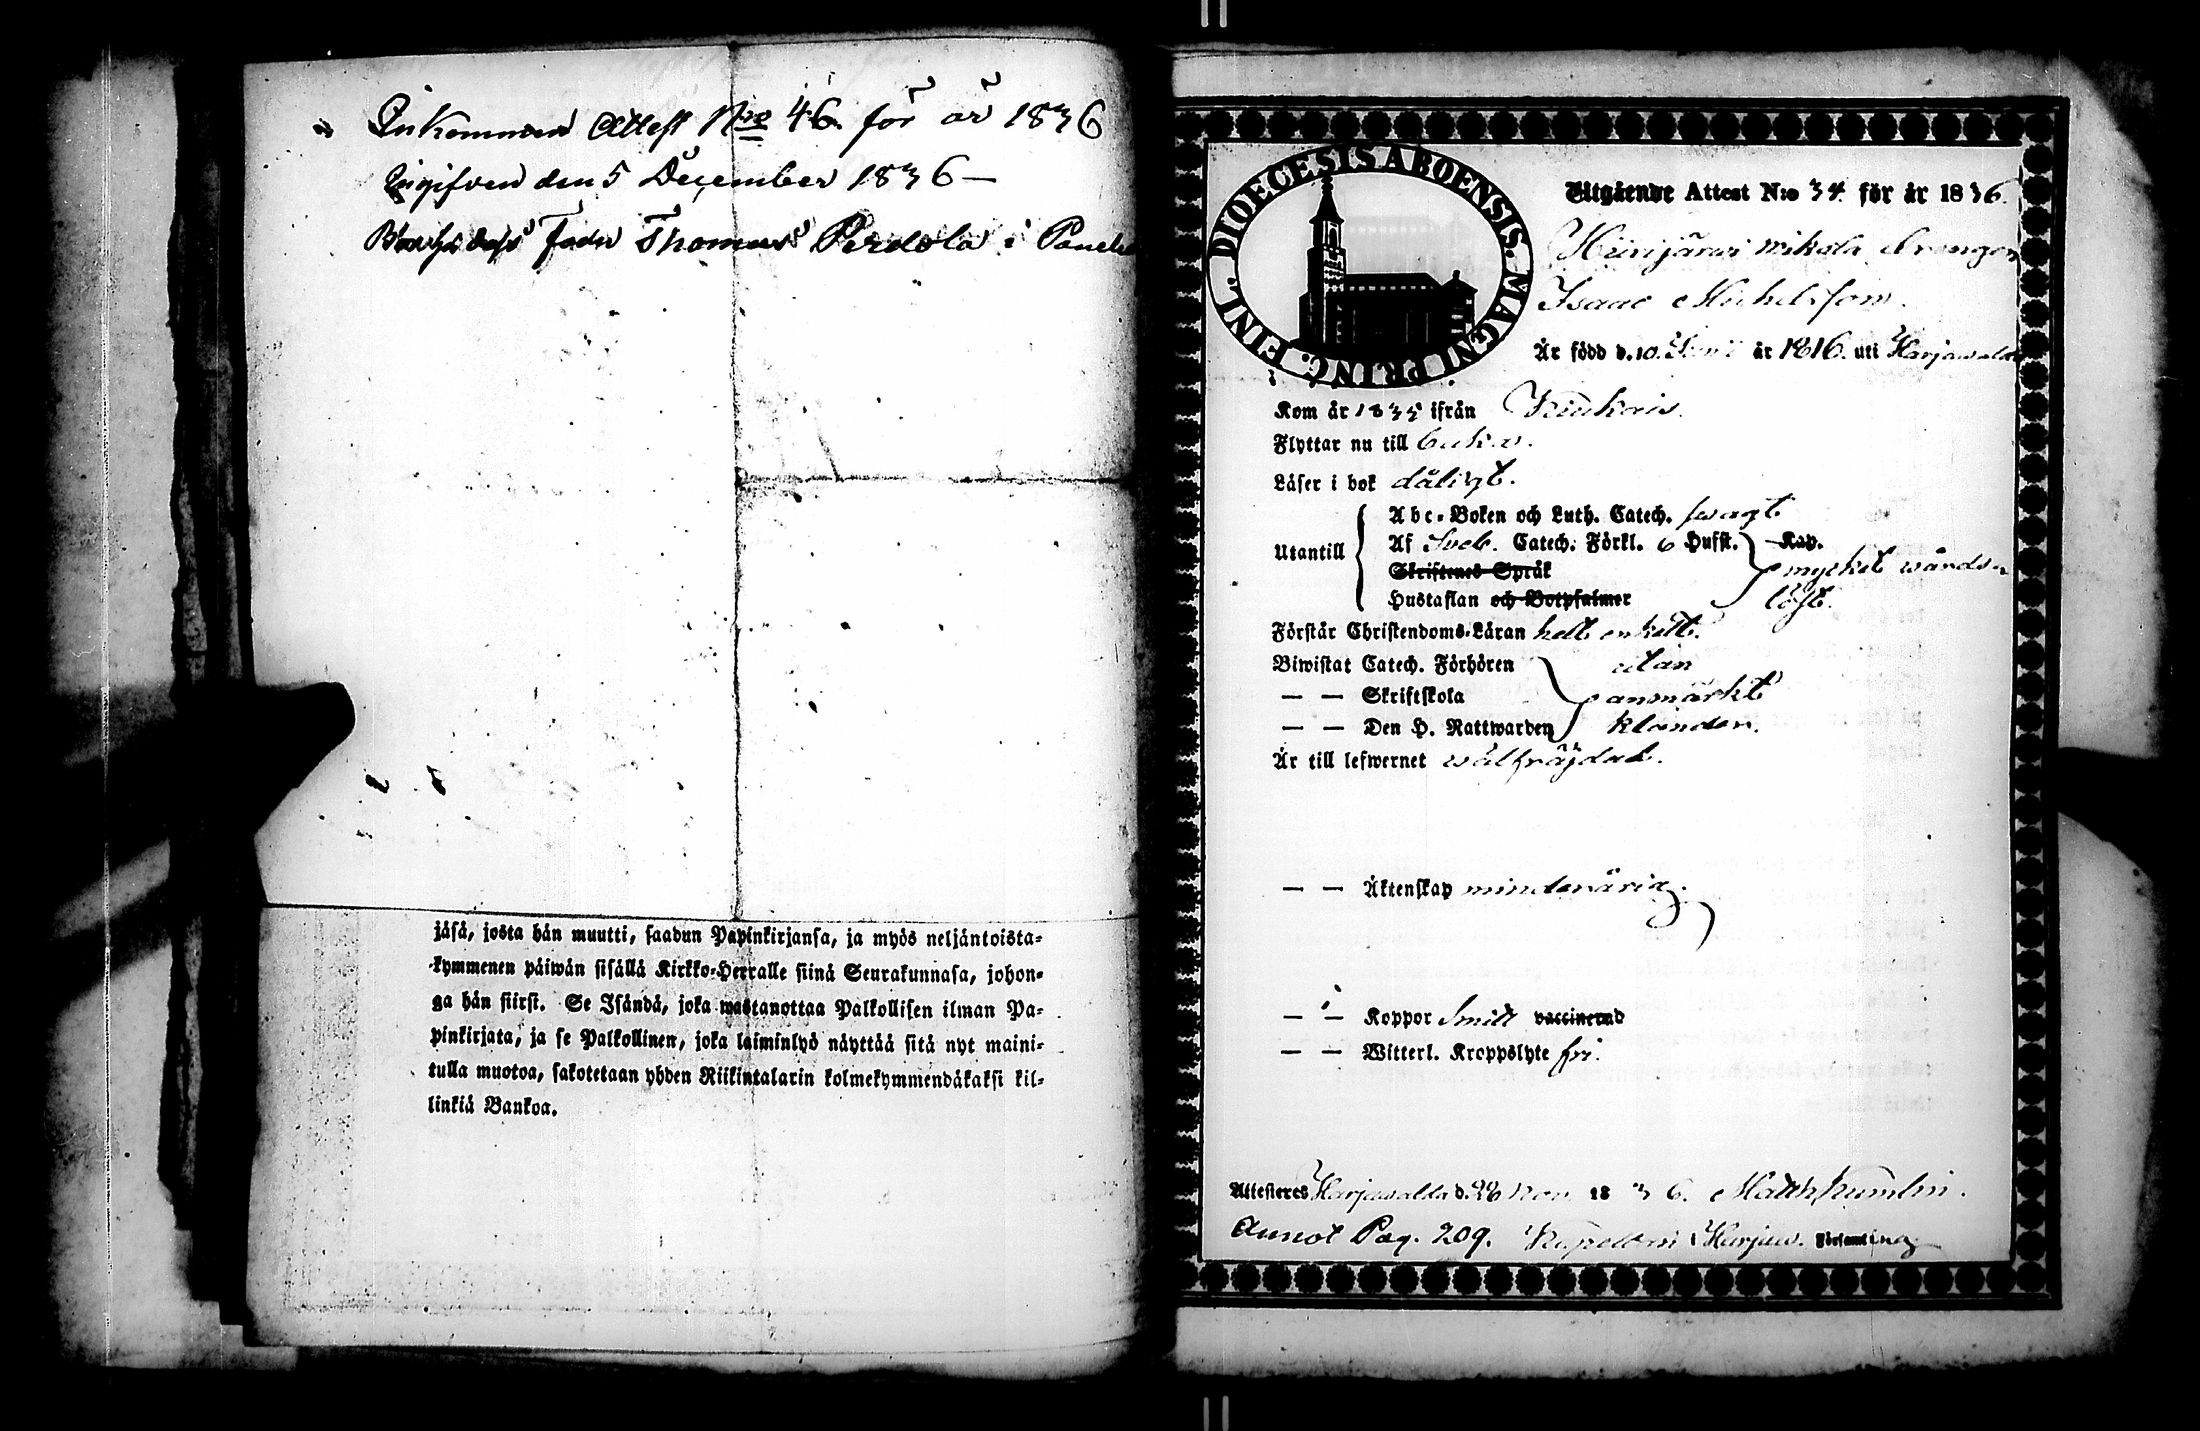 Inkommen Attest Nro 46. för år 1836
Ingifven den 5 December 1836 –
Thomas Perdola i Panelia
jäsä, josta hän muutti, saadun Papinkirjansa, ja myös neljäntoista-
kymmenen päiwän sisällä Kirkko-Herralle siinä Seurakunnasa, johon-
ga hän siirst. Se Isändä, joka wastanottaa Palkollisen ilman Pa-
pinkirjata, ja se Palkollinen, joka laiminlyö näyttää sitä nyt maini-
tulla muotoa, sakotetaan yhden Riikintalarin kolmekymmendäkaksi kil-
linkiä Bankoa.
FINL. DIOECESIS ABOENSIS. MAGNI PRINC.
Utgående Attest N:o 34. för år 1836.
Hiirijärwi Mikola drengen
Isaac Michelsson.
Är född d. 10. Juni år 1816. uti Harjawalda
Kom år 1835 ifrån Kiukais.
Flyttar nu till Eura.
Läser i bok dåligt.
Utantill
Abc-Boken och Luth. Catech. swagt
Af Sveb. Catech. Förkl. 6 Hufst. Kap.
Skriftenes Språk
mycket wårdslöst.
Hustaflan och Botpsalmer
Förstår Christendoms-Läran helt enkelt.
Biwistat Catech. Förhören utan
— — Skriftskola anmärkt
— — Den H. Nattwarden klander.
Är till lefwernet wälfräjdad.
— — Äktenskap minderårig.
— — Koppor Smitt vaccinerad
— — Witterl. Kroppslyte fri.
Attesteras Harjawalda d. 28 Nov. 1836. Math Humlin.
Annot Pag. 209. Kapellan i Harjaw. Församling